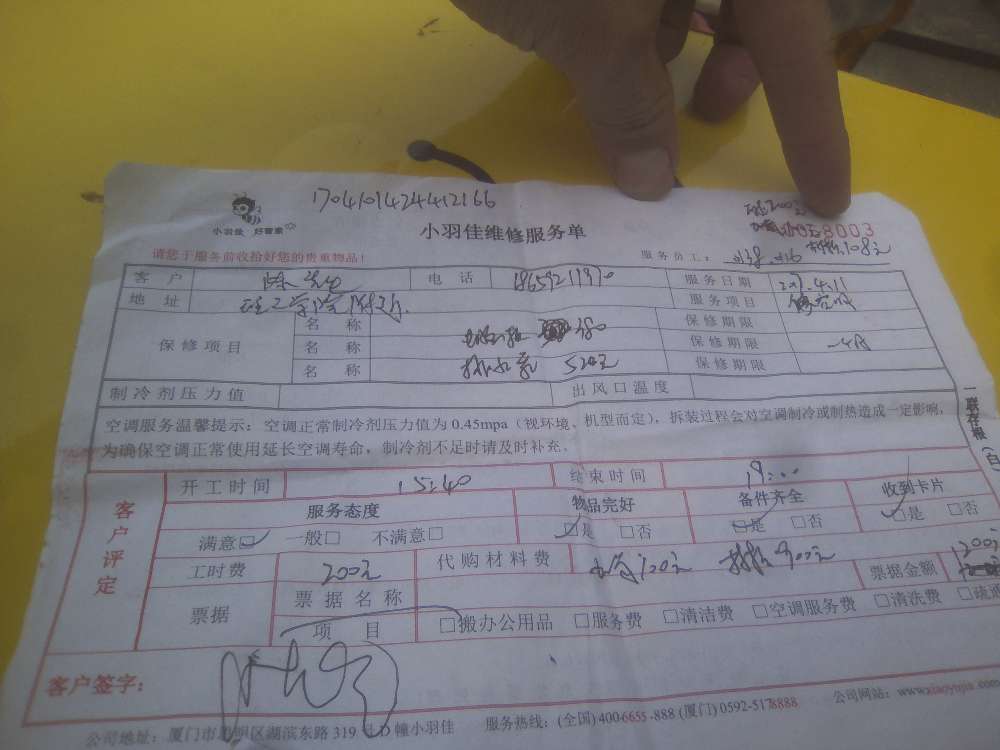 1704101424412166
小羽佳 好管家
小羽佳维修服务单
8003
请您于服务前收拾好您的贵重物品!
服务员工:
客户 电话 服务日期
地址 服务项目
保修项目 名称 保修期限
名称 480 保修期限
名称 排水泵 520元 保修期限
制冷剂压力值 出风口温度
空调服务温馨提示:空调正常制冷剂压力值为0.45mpa(视环境、机型而定),拆装过程会对空调制冷或制热造成一定影响,
为确保空调正常使用延长空调寿命,制冷剂不足时请及时补充.
一联存根(白
客户评定
开工时间 15:40 结束时间 19:00
服务态度 物品完好 备件齐全 收到卡片
满意□ 一般□ 不满意□ □是 □否 □是 □否 □是 □否
工时费 200元 代购材料费 票据金额 1200元
票据 票据名称
项目 □搬办公用品 □服务费 □清洁费 □空调服务费 □清洗费 □疏通
客户签字:
公司地址:厦门市思明区湖滨东路319号D幢小羽佳 服务热线:(全国)400-6655-888(厦门)0592-5178888 公司网站:www.xiaoyujia.com